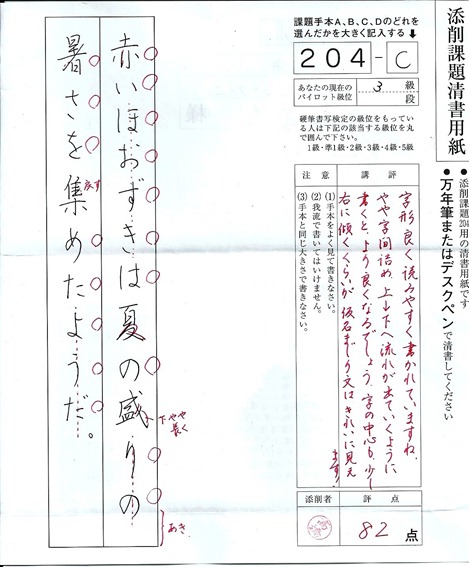 添削課題清書用紙
● 添削課題204用の清書用紙です
● 万年筆またはデスクペンで清書してください
課題手本A、B、C、Dのどれを
選んだかを大きく記入する
204-C
あなたの現在の
パイロット級位
3 級
段
硬筆書写検定の級位をもってい
る人は下記の該当する級位を丸
で囲んで下さい。
1級・準1級・2級・3級・4級・5級
講評
字形良く読みやすく書かれていますね。
やや字間詰め 上→下へ流れが出ていくように
書くと、より良くなるでしょう。字の中心も、少し
右に傾くくらいが仮名まじり文はきれいに見え
ます。
注意
(1)手本をよく見て書きなさい。
(2)我流で書いてはいけません。
(3)手本と同じ大きさで書きなさい。
評点
82点
添削者
赤いほおずきは夏の盛りの
下やや
長く
あき
暑さを集めたようだ。
戻す